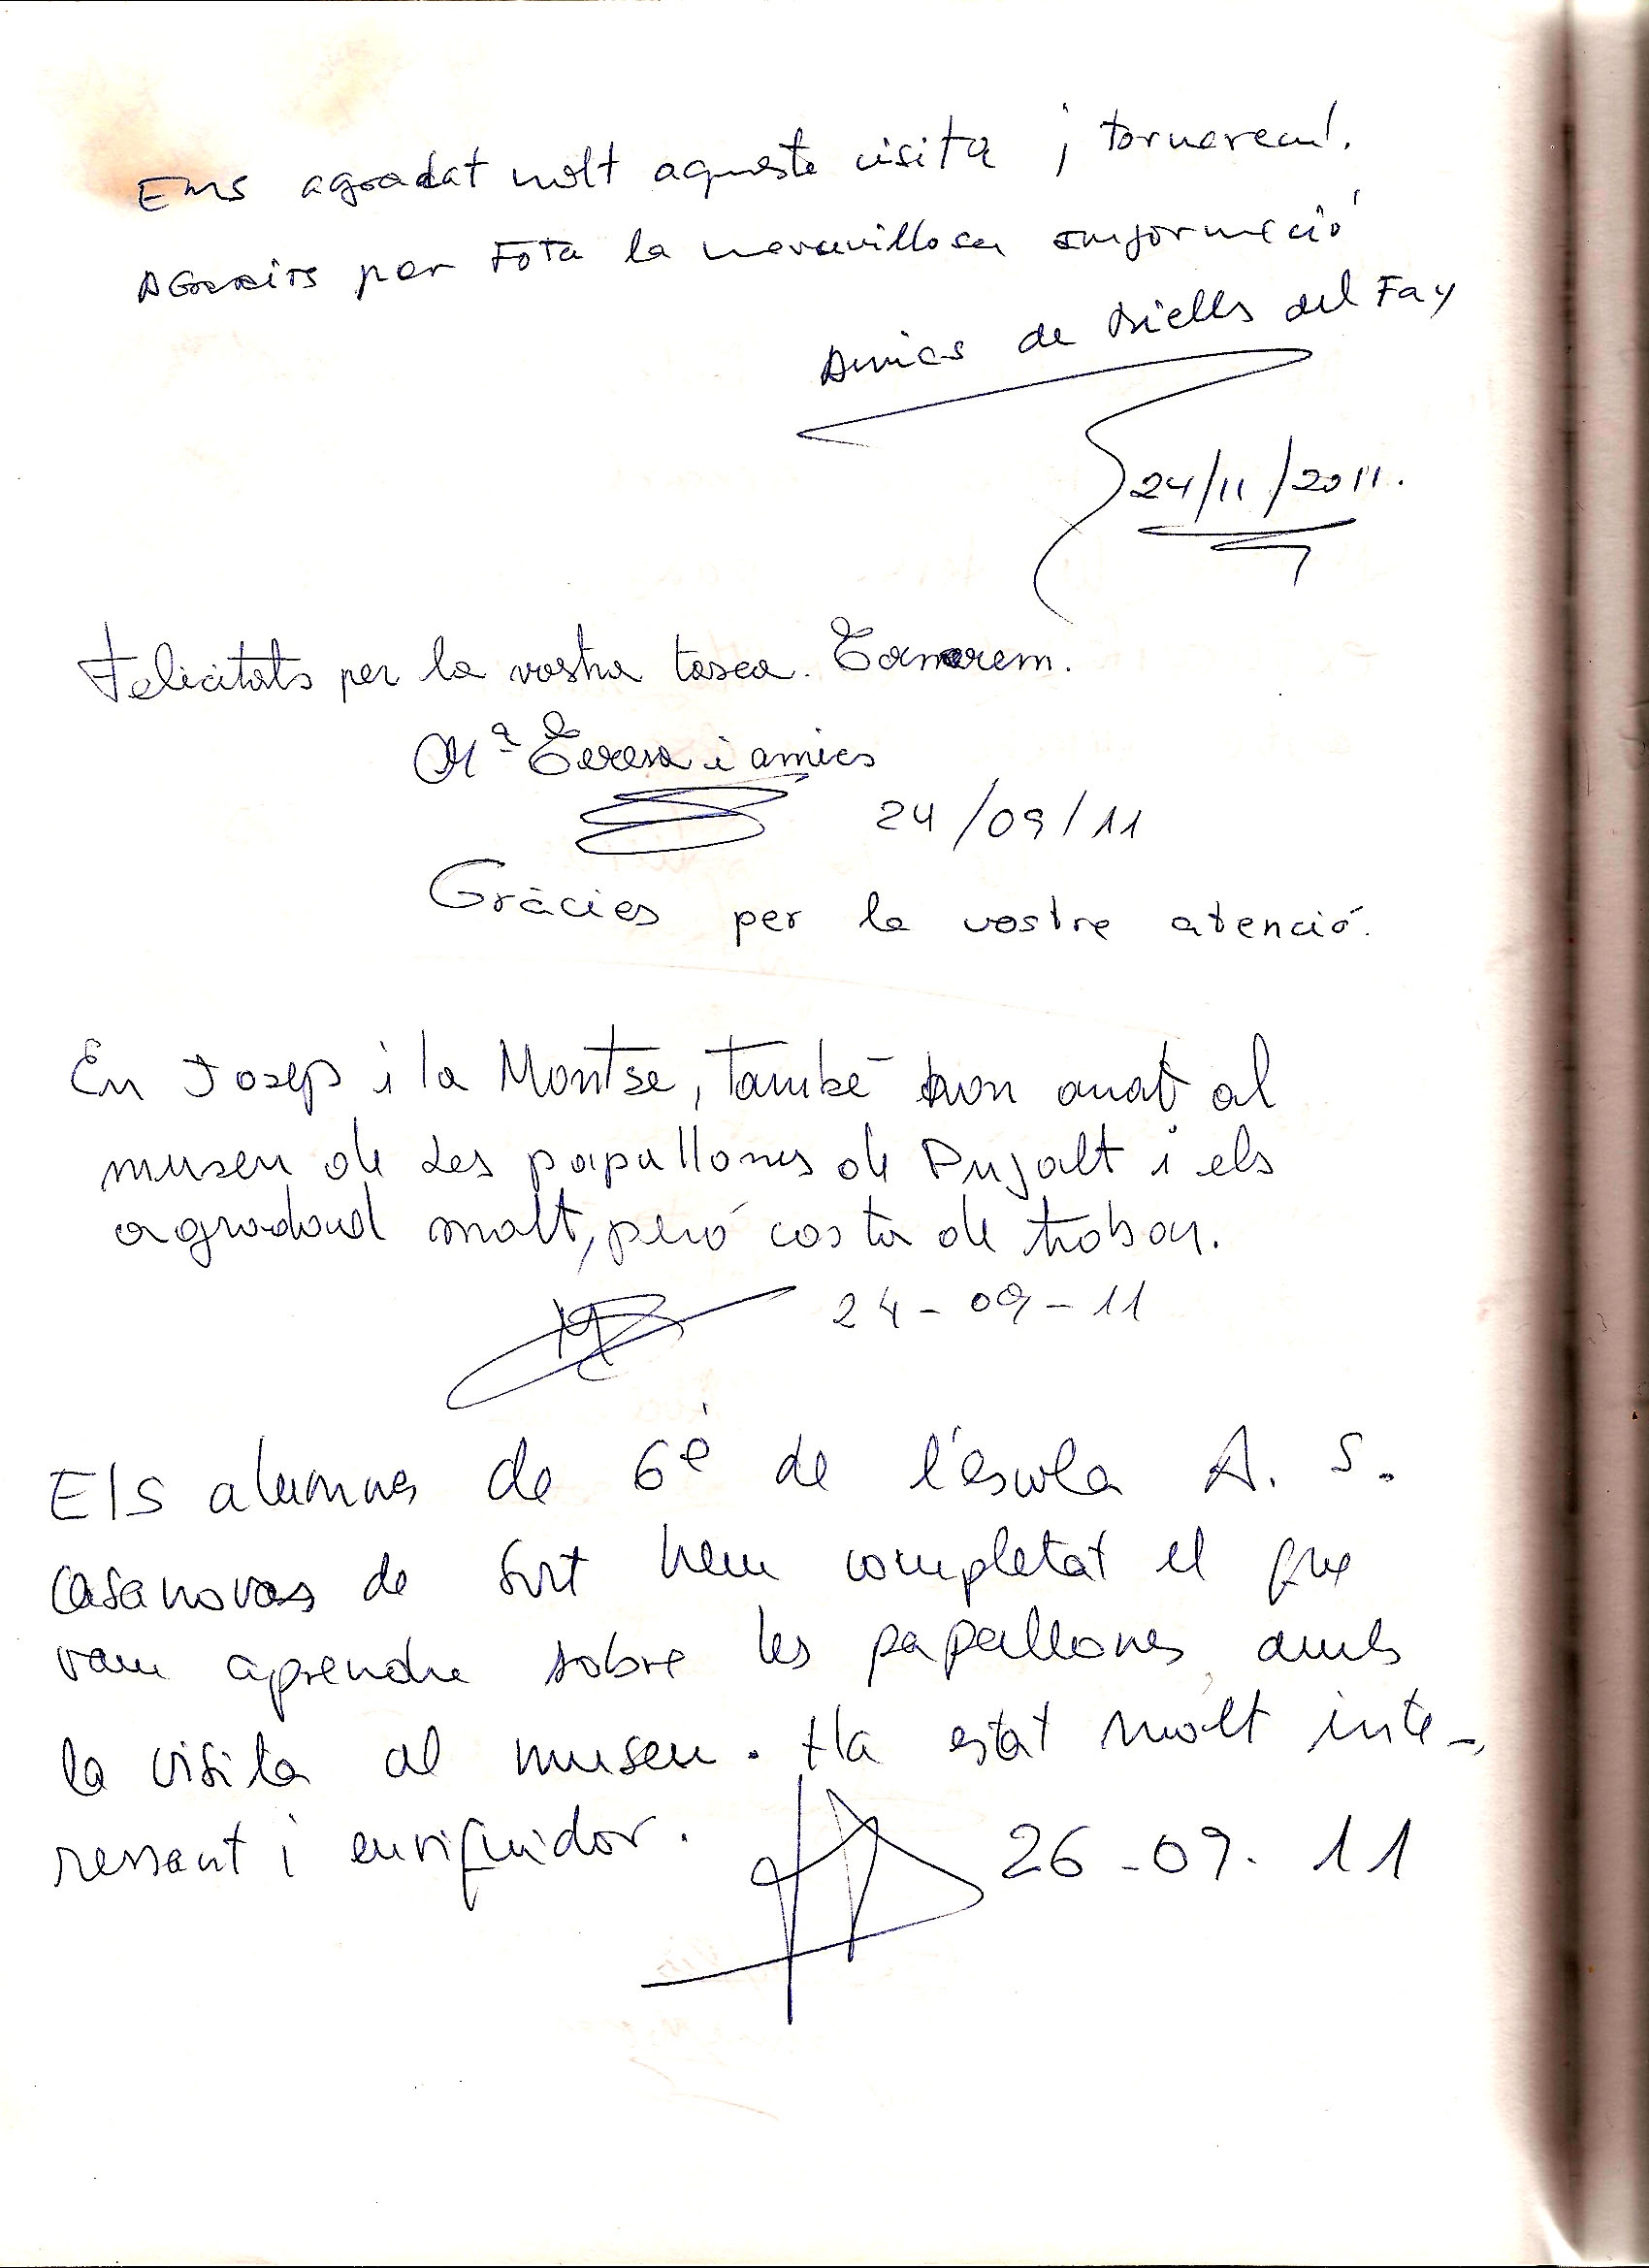 Ens agradat molt aquesta visita i tornarem!.
AGraits per tota la meravillosa informació
Amics de Riells del Fay
24/11/2011.
Felicitats per la vostra tasca. Tornarem.
Mª Teresa i amics
24/09/11
Gràcies per la vostre atenció.
En Josep i la Montse, també han anat al
museu de Les papallones de Pujalt i els
agradad molt, peró costa de trobar.
24-09-11
Els alumnes de 6è de l'escola A. S.
Casanovas de Surt hem completat el que
vam aprendre sobre les papallones amb
la visita al museu. Ha estat molt inte-
ressant i enriquidor.
26-09-11